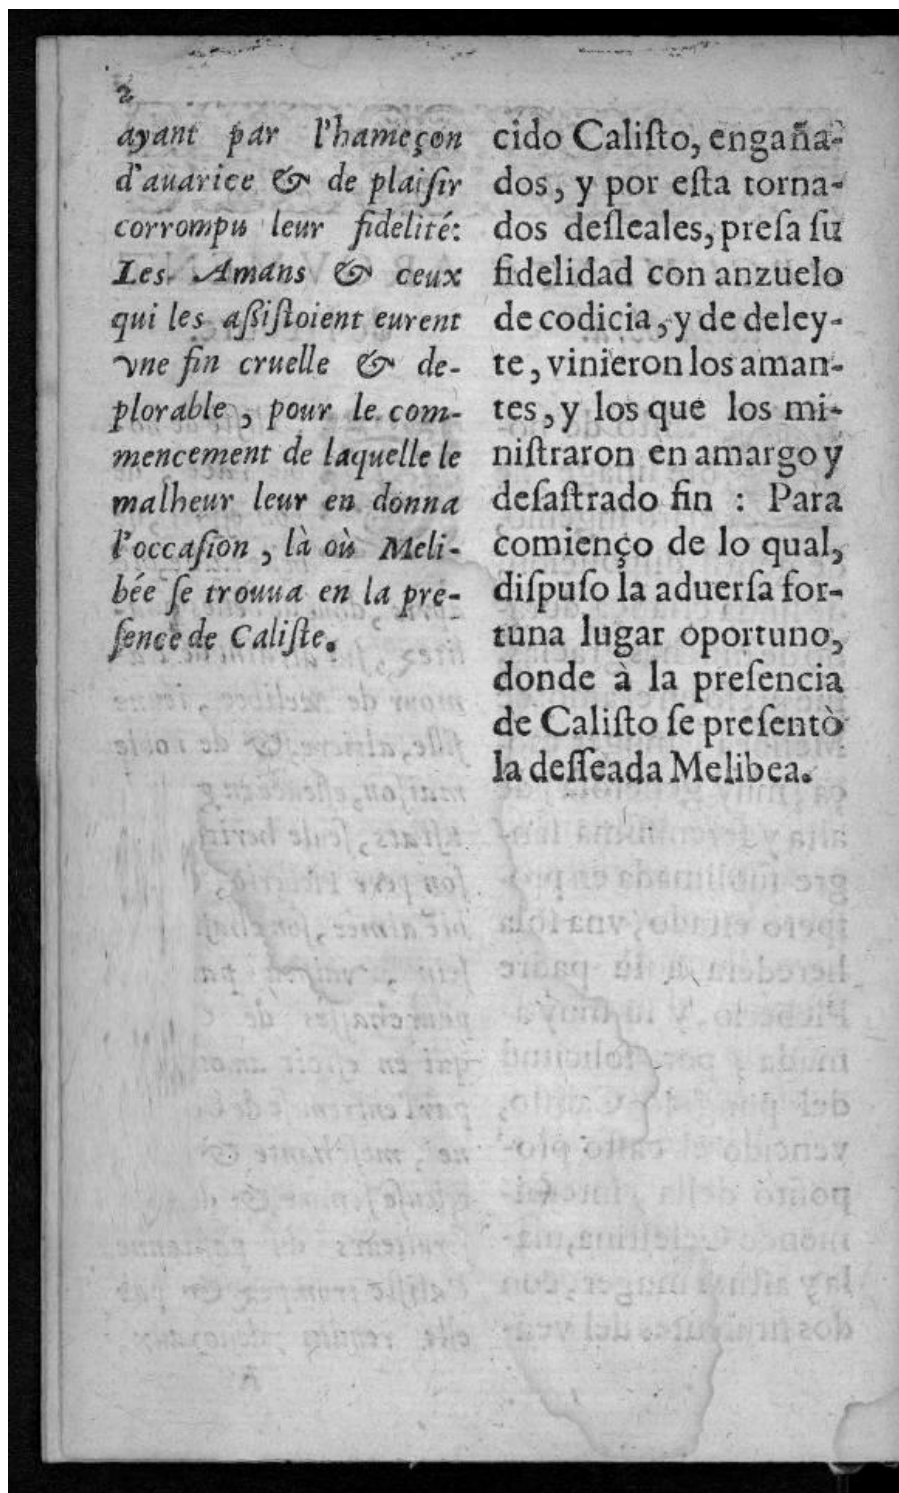 2
ayant par l'hameçon
d'auarice & de plaiſir
corrompu leur fidelité:
Les Amans & ceux
qui les aßiſtoient eurent
vne fin cruelle & de-
plorable, pour le com-
mencement de laquelle le
malheur leur en donna
l'occaſion, là où Meli-
bée ſe trouua en la pre-
ſence de Caliſte.
cido Caliſto, engaña-
dos, y por eſta torna-
dos deſleales, preſa ſu
fidelidad con anzuelo
de codicia, y de deley-
te, vinieron los aman-
tes, y los que los mi-
niſtraron en amargo y
deſaſtrado fin : Para
comienço de lo qual,
diſpuſo la aduerſa for-
tuna lugar oportuno,
donde à la preſencia
de Caliſto ſe preſentò
la deſſeada Melibea.